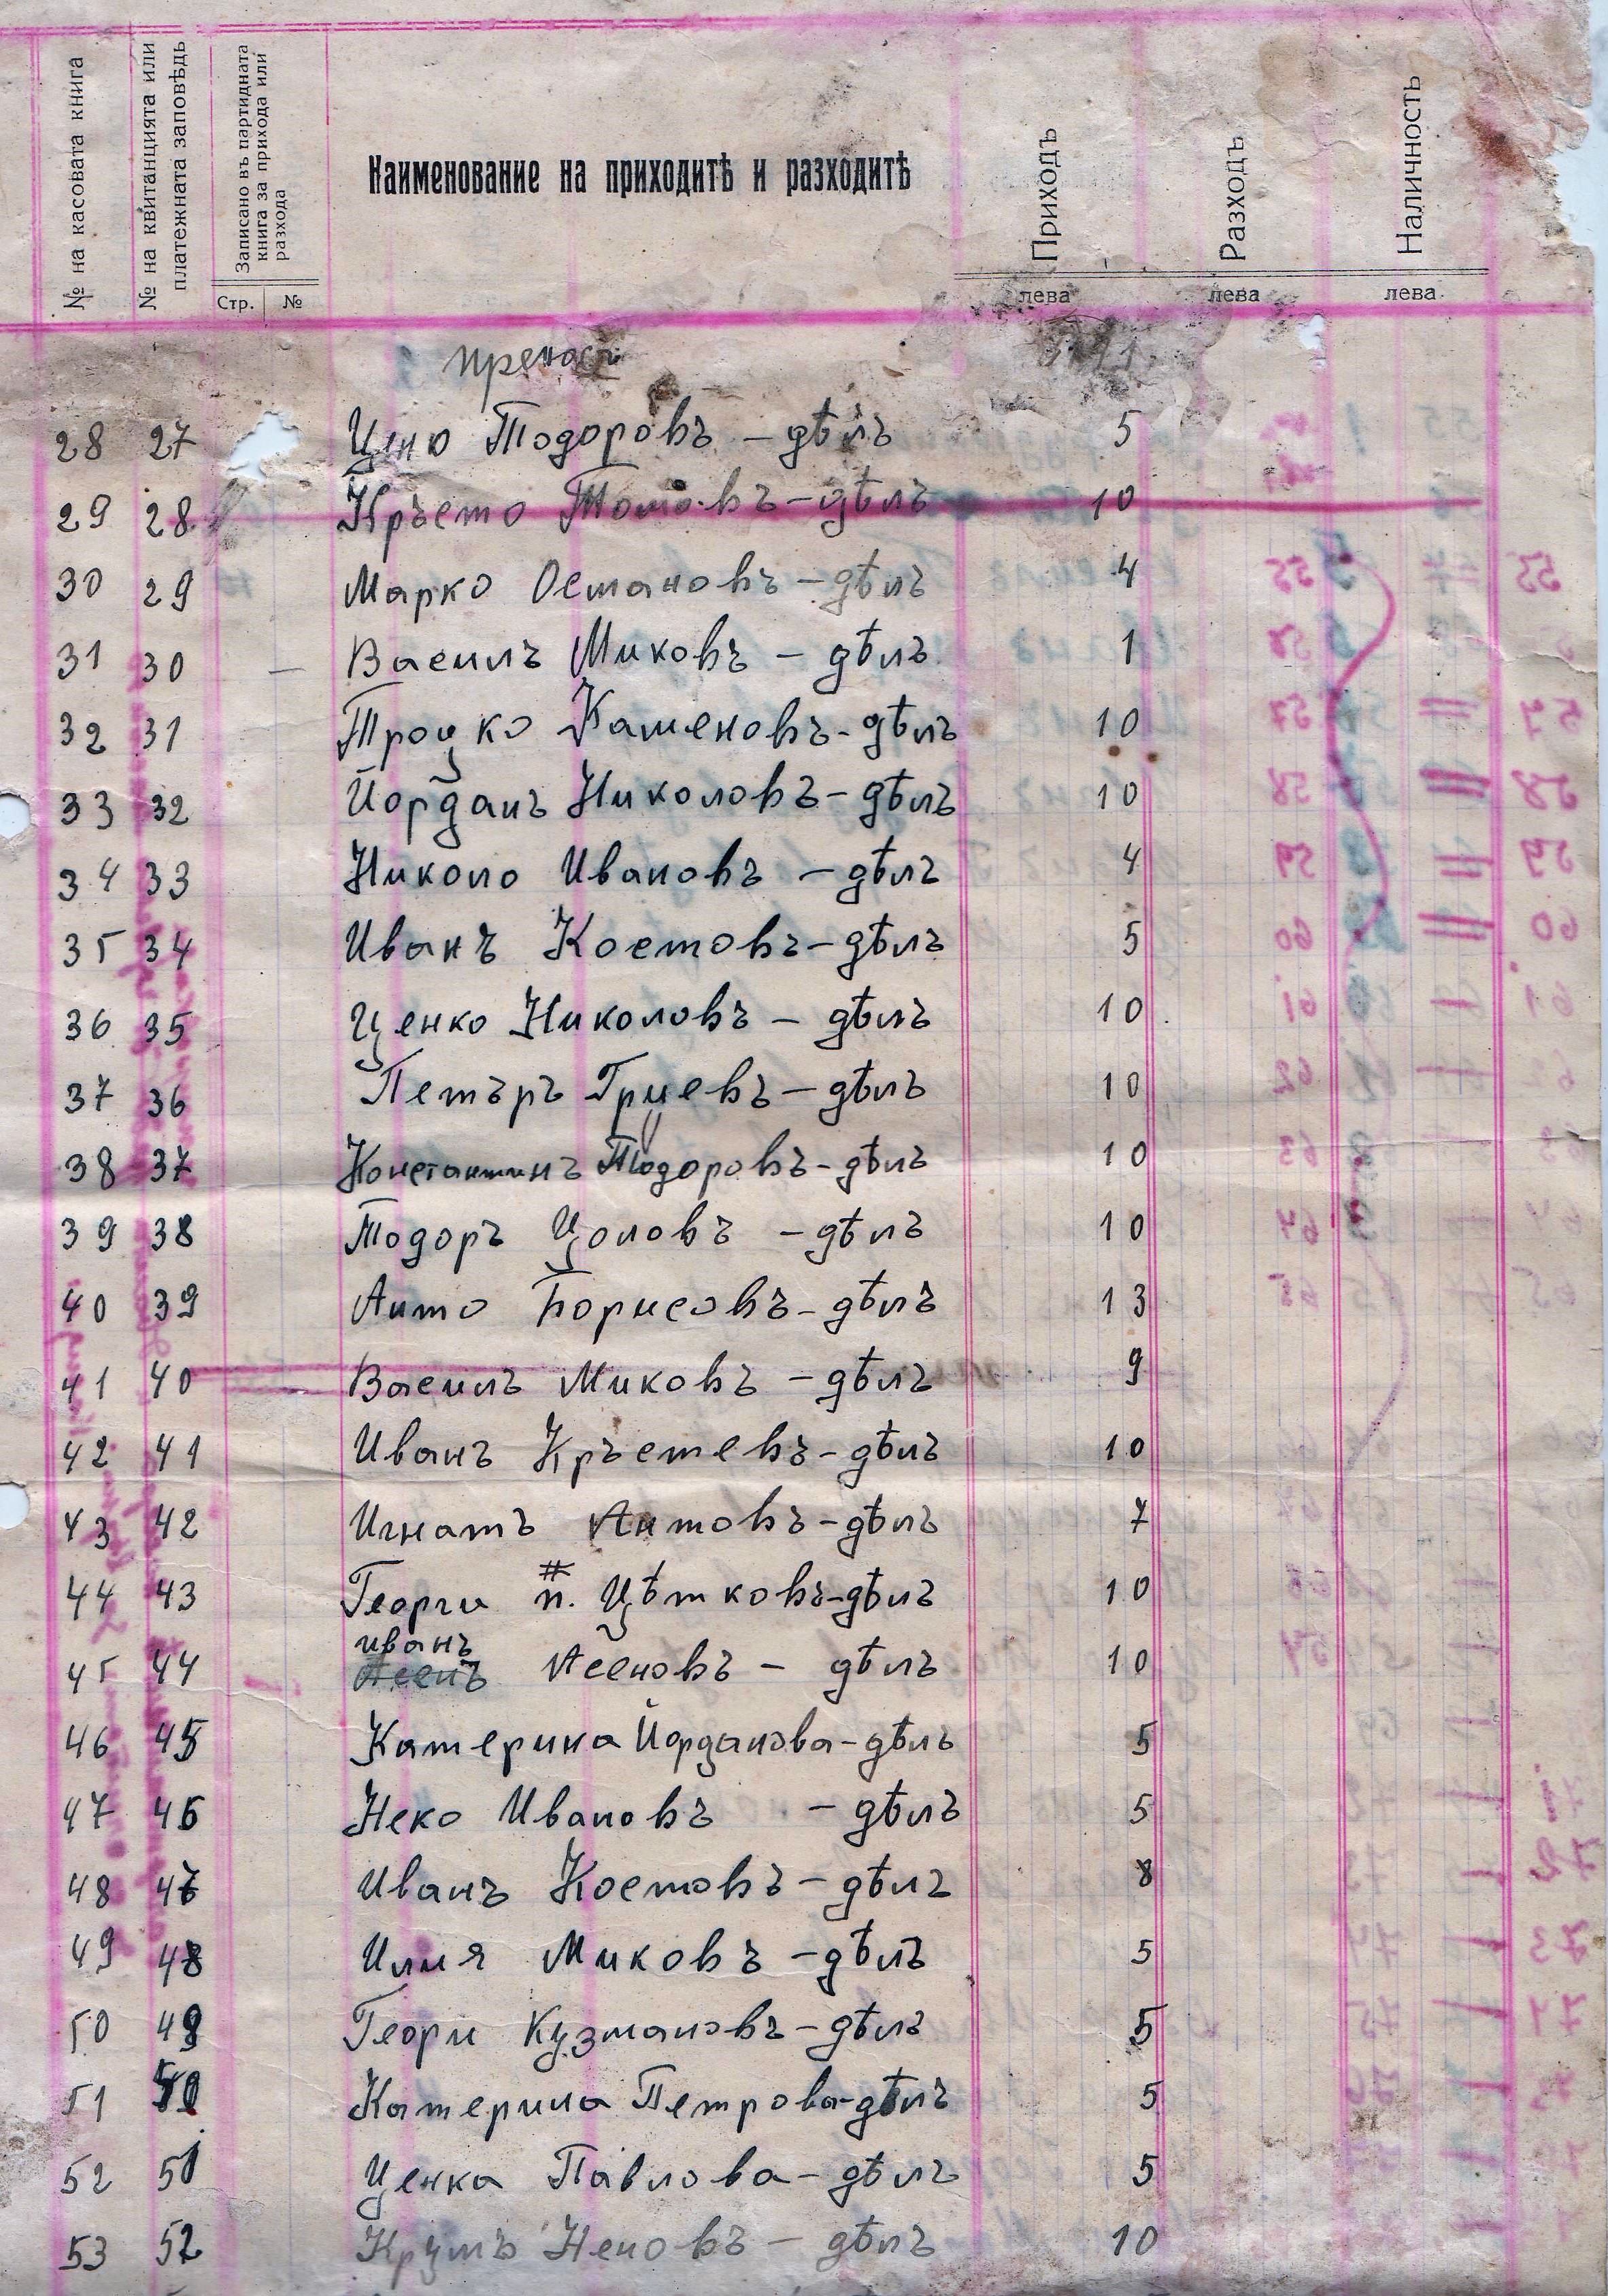 № на касовата книга
№ на квитанцията или платежната заповѣдь
Записано въ партидната книга за прихода или разхода
Стр. №
Наименование на приходитѣ и разходитѣ
Приходъ
лева
Разходъ
лева
Наличность
лева
преносъ
28 27 Цено Тодоровъ - дѣлъ 5
29 28 Кръсто Тотовъ - дѣлъ 10
30 29 Марко Остановъ - дѣлъ 4
31 30 — Василъ Миковъ - дѣлъ 1
32 31 Троцко Каменовъ - дѣлъ 10
33 32 Йорданъ Николовъ - дѣлъ 10
34 33 Николо Ивановъ - дѣлъ 4
35 34 Иванъ Костовъ - дѣлъ 5
36 35 Ценко Николовъ - дѣлъ 10
37 36 Петъръ Гцевъ - дѣлъ 10
38 37 Константинъ Тодоровъ - дѣлъ 10
39 38 Тодоръ Цоловъ - дѣлъ 10
40 39 Анто Борисовъ - дѣлъ 13
41 40 — Василъ Миковъ - дѣлъ 9
42 41 Иванъ Кръстевъ - дѣлъ 10
43 42 Игнатъ Антовъ - дѣлъ 7
44 43 Георги п. Цѣтковъ - дѣлъ 10
иванъ
45 44 Асенъ Асеновъ - дѣлъ 10
46 45 Катерина Йорданова - дѣлъ 5
47 46 Неко Ивановъ - дѣлъ 5
48 47 Иванъ Костовъ - дѣлъ 8
49 48 Илия Миковъ - дѣлъ 5
50 49 Георги Кузмановъ - дѣлъ 5
51 50 Катерина Петрова - дѣлъ 5
52 51 Ценка Павлова - дѣлъ 5
53 52 Крумъ Неновъ - дѣлъ 10